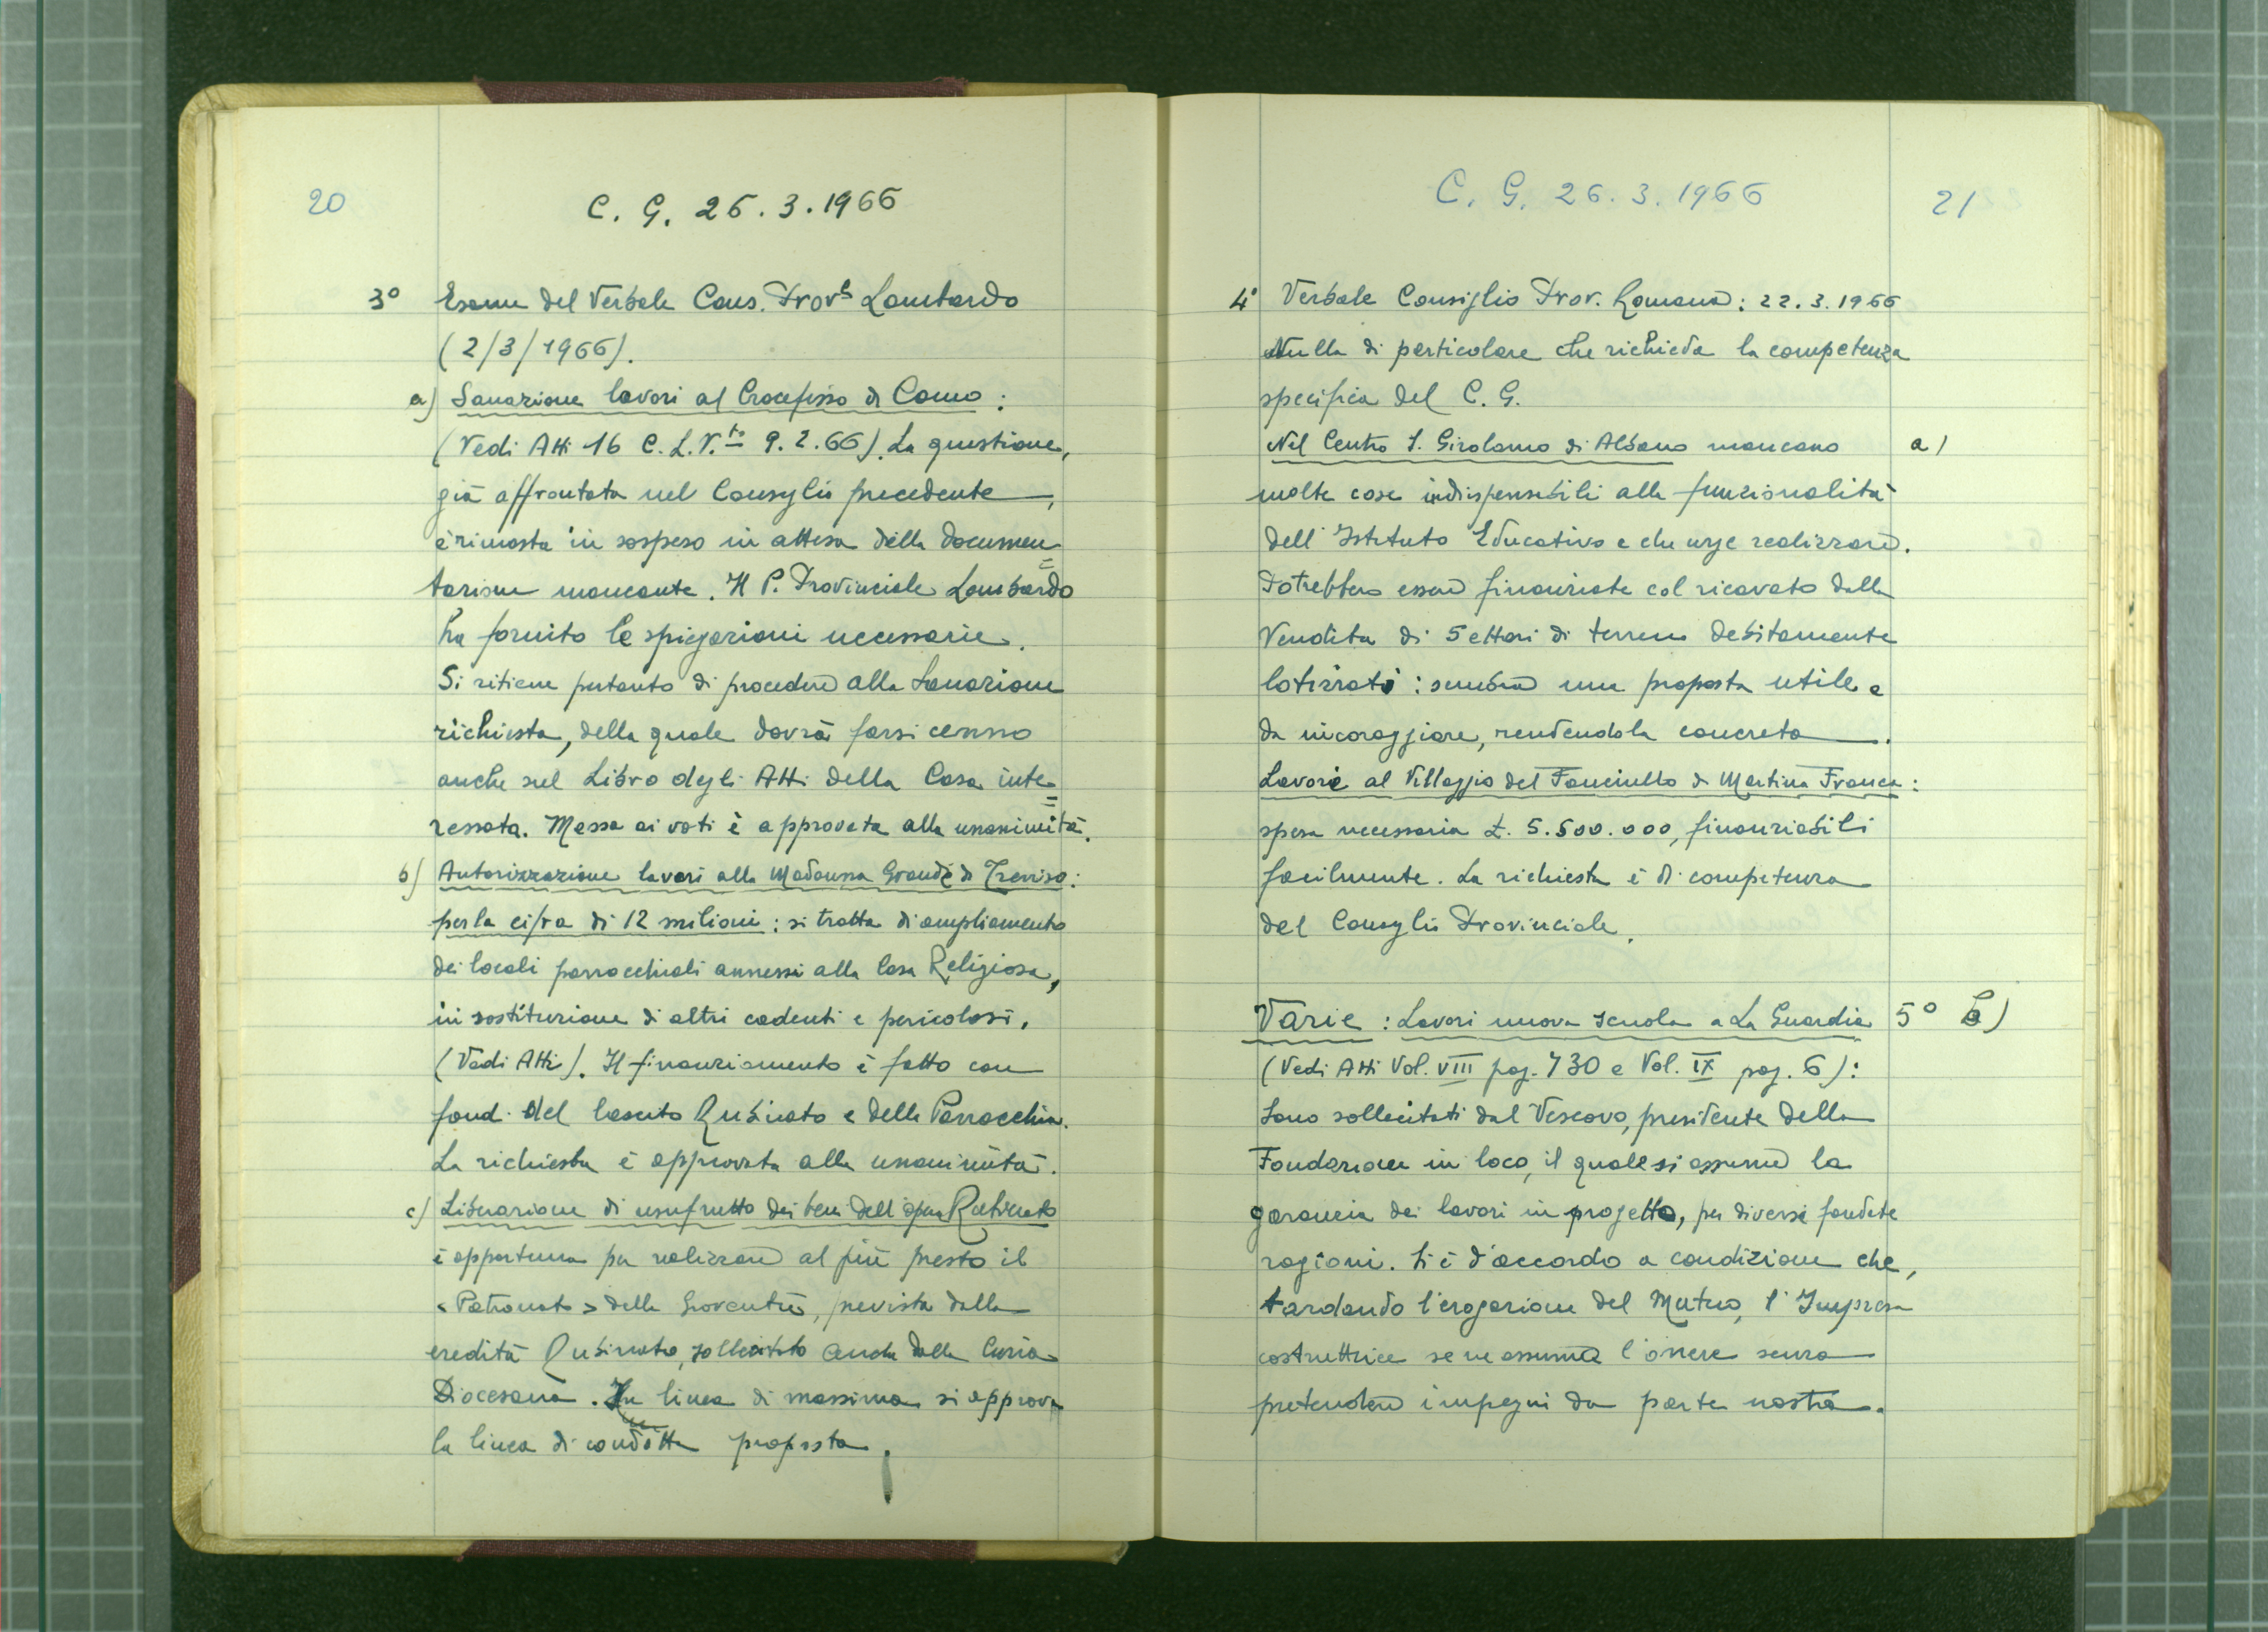 20
C. G. 26.3.1966
3° Esame del Verbale Cons. Prov.le Lombardo
(2/3/1966).
a) Sanazione lavori al Crocefisso di Como:
(Vedi Atti 16 C.L.V.to 9.2.66). La questione,
già affrontata nel Consiglio precedente,
è rimasta in sospeso in attesa della documen=
tazione mancante. Il P. Provinciale Lombardo
ha fornito le spiegazioni necessarie.
Si ritiene pertanto di procedere alla Sanazione
richiesta, della quale dovrà farsi cenno
anche sul Libro degli Atti della Casa inte=
ressata. Messa ai voti è approvata alla unanimità.
b) Autorizzazione lavori alla Madonna Grande di Treviso:
per la cifra di 12 milioni: si tratta di ampliamento
dei locali parrocchiali annessi alla Casa Religiosa,
in sostituzione di altri cadenti e pericolosi.
(Vedi Atti). Il finanziamento è fatto con
fondi del lascito Rubinato e della Parrocchia.
La richiesta è approvata alla unanimità.
c) Liberazione di usufrutto dei beni dell'opera Rubinato
è opportuna per realizzare al più presto il
<Patronato> della Gioventù, prevista dalla
eredità Rubinato, sollecitato anche dalla Curia
Diocesana. In linea di massima si approva
la linea di condotta proposta.
C. G. 26.3.1966
21
4° Verbale Consiglio Prov. Romano: 22.3.1966
Nulla di particolare che richieda la competenza
specifica del C. G.
Nel Centro S. Girolamo di Albano mancano a)
molte cose indispensabili alla funzionalità
dell'Istituto Educativo e che urge realizzare.
Potrebbero essere finanziate col ricavato dalla
Vendita di 5 ettari di terreno debitamente
lotizzati: sembra una proposta utile e
da incoraggiare, rendendola concreta.
Lavori al Villaggio del Fanciullo di Martina Franca:
spesa necessaria £. 5.500.000, finanziabili
facilmente. La richiesta è di competenza
del Consiglio Provinciale.
Varie: Lavori nuova scuola a La Guardia 5° b)
(Vedi Atti Vol. VIII pag. 730 e Vol. IX pag. 6):
Sono sollecitati dal Vescovo, presidente della
Fondazione in loco, il quale si assume la
garancia dei lavori in progetto, per diverse fondate
ragioni. Si è d'accordo a condizione che,
tardando l'erogazione del Mutuo, l'Impresa
costruttrice se ne assuma l'onere senza
pretendere impegni da parte nostra.